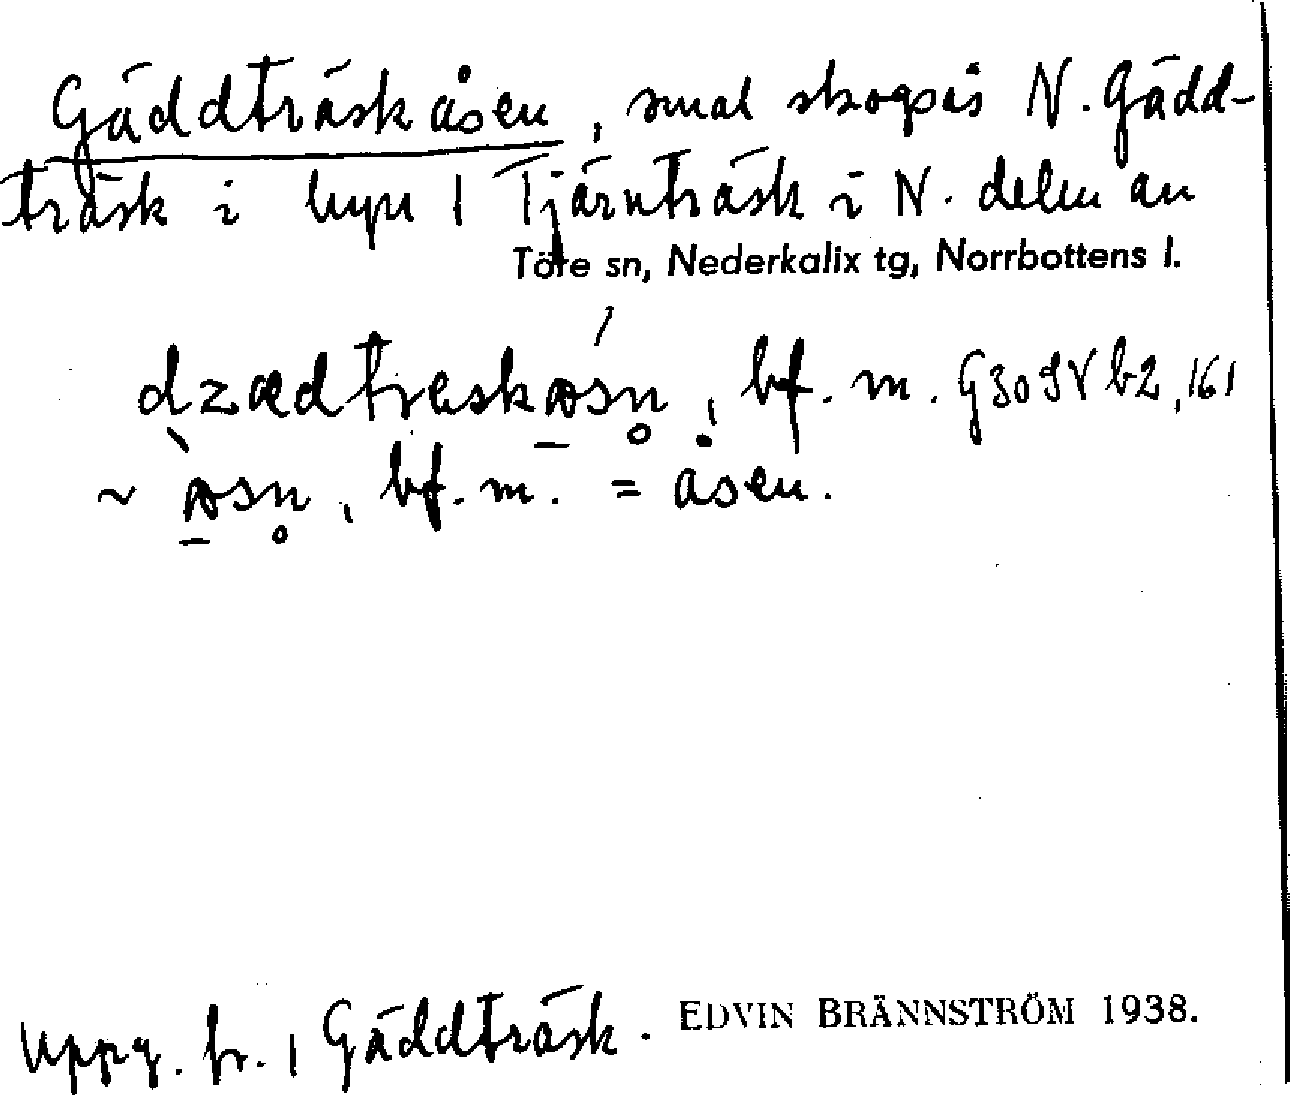 Gäddträskåsen, smal skogsås N. Gädd-
träsk i byn 1 Tjärnträsk i N. delen av
Töre sn, Nederkalix tg, Norrbottens l.
dzædtræskåsn, bf. m. G30 SV b2, 161
~ åsn, bf. m. = åsen.
Uppg. fr. 1 Gäddträsk. EDVIN BRÄNNSTRÖM 1938.